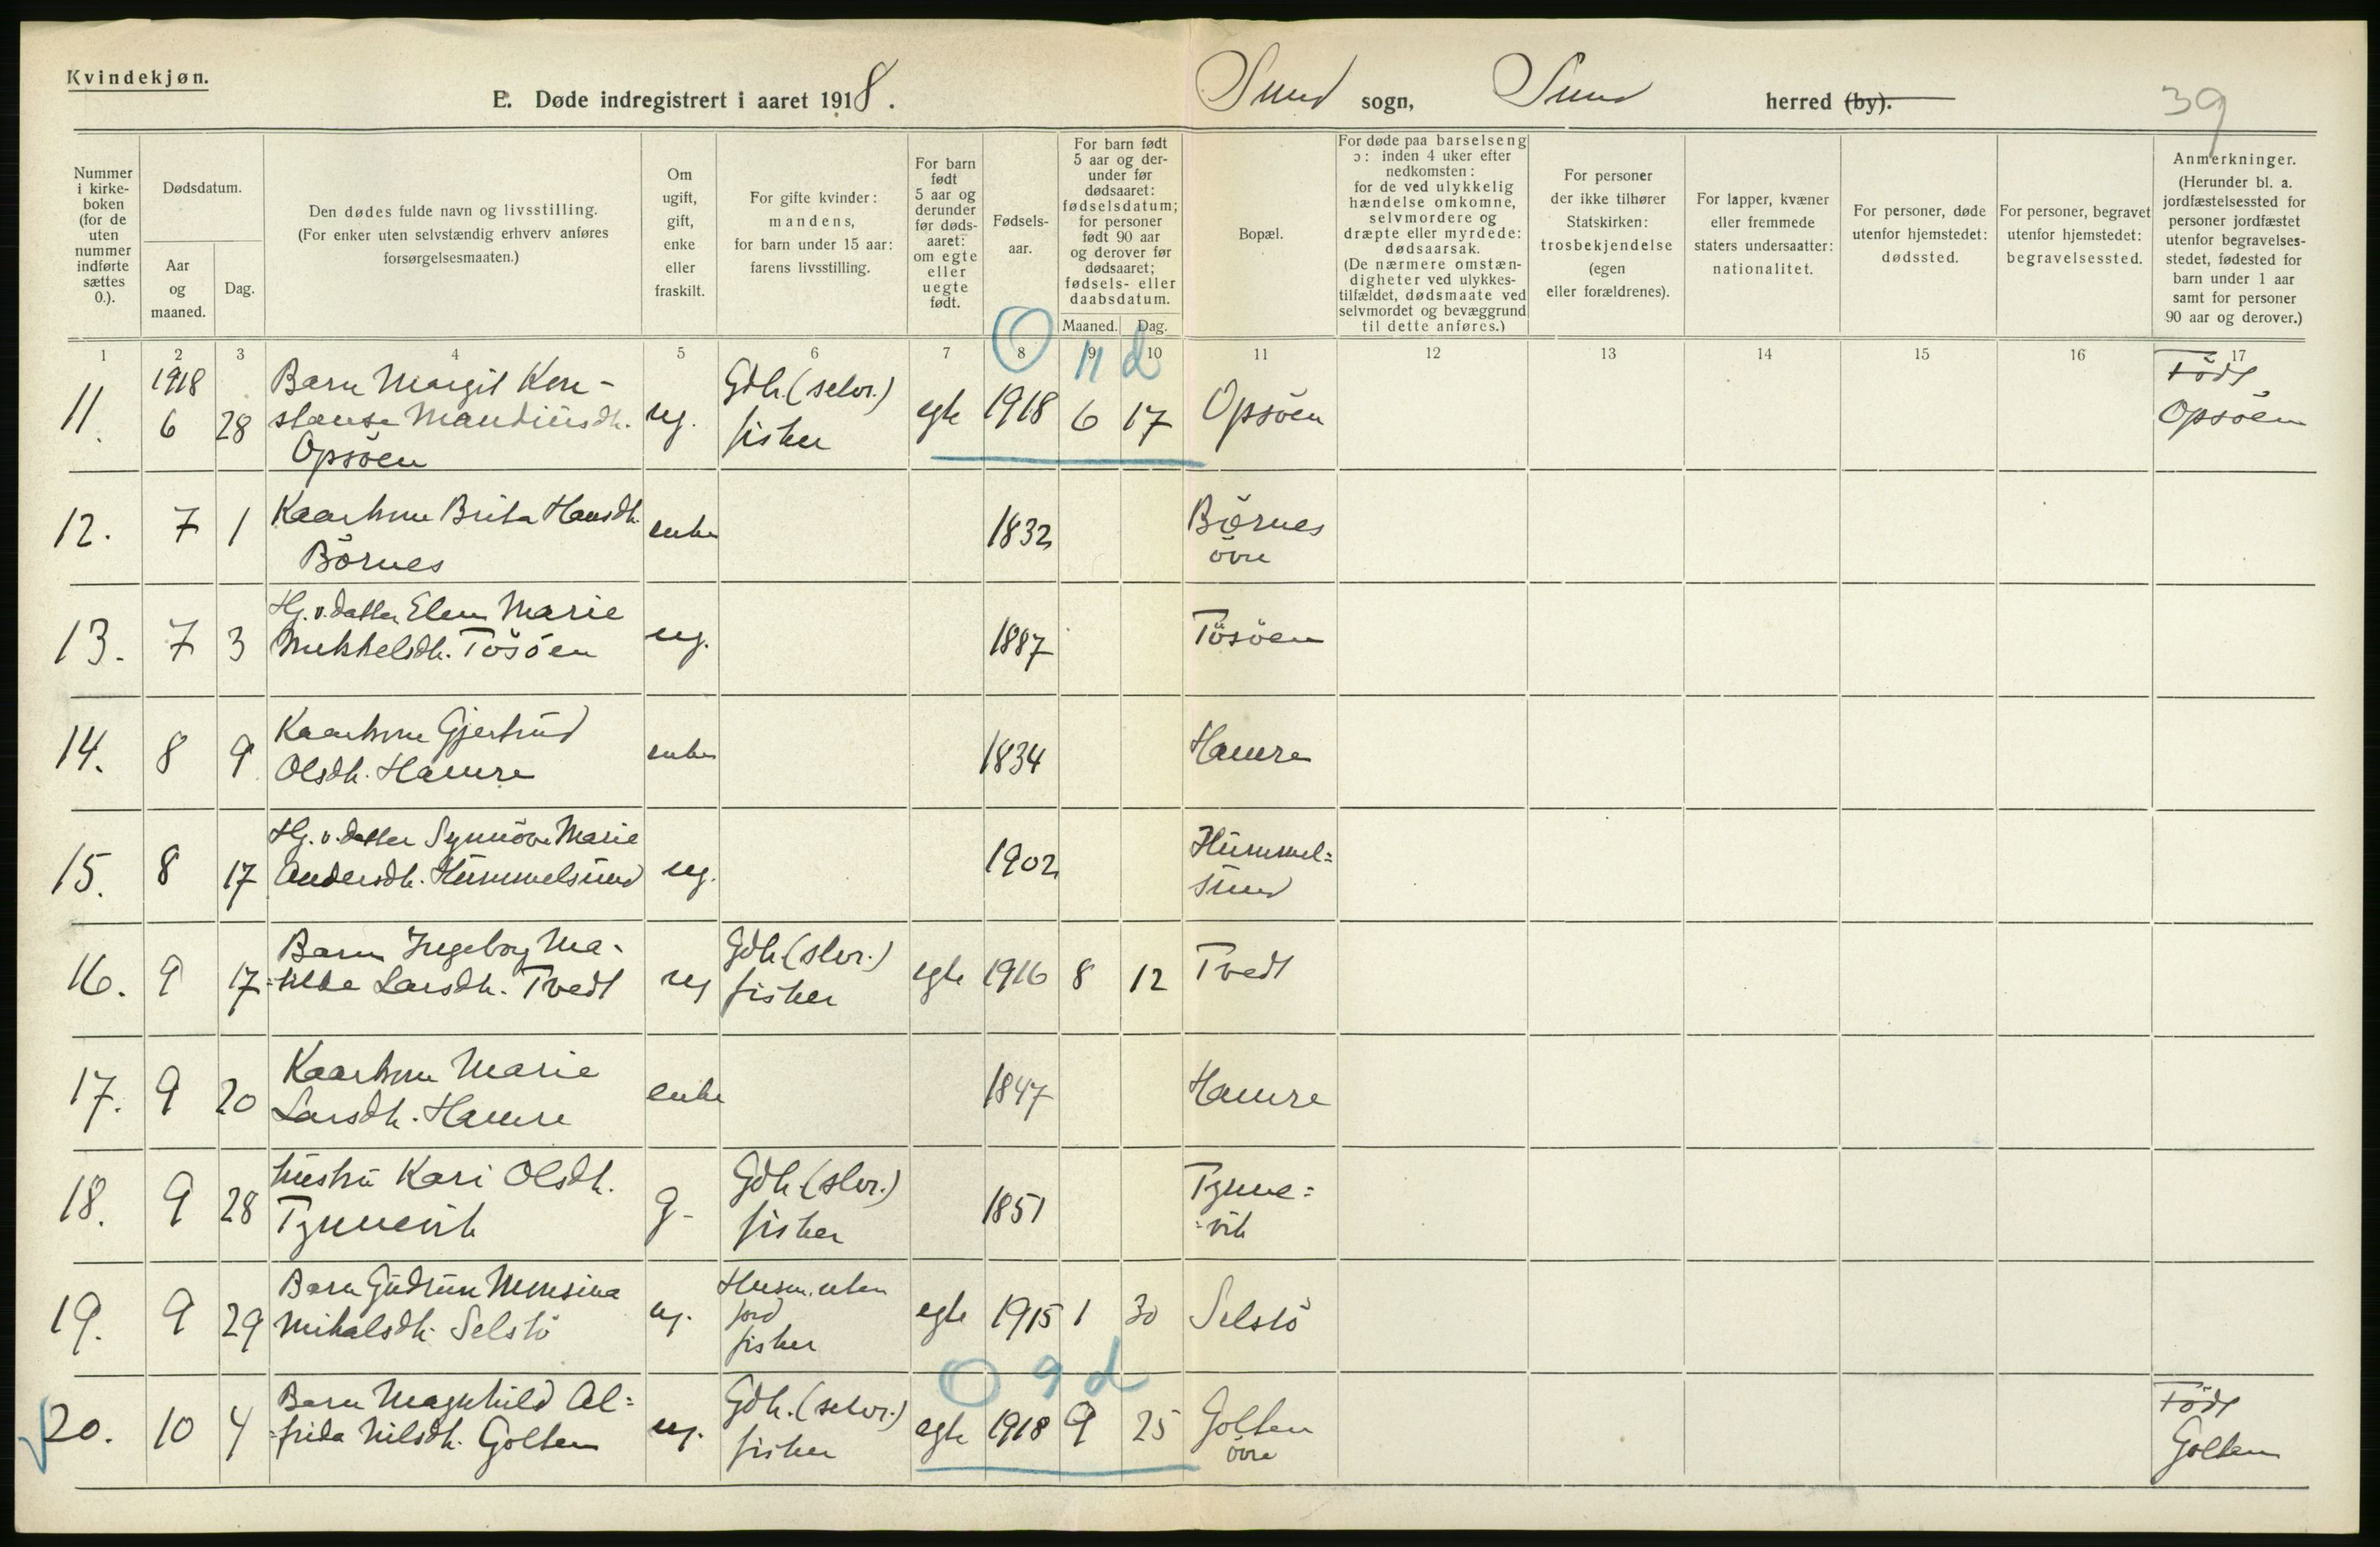 Kvindekjøn.
E. Døde indregistrert i aaret 1918.
Sund sogn, Sund herred (by).
39
Nummer i kirkeboken (for de uten nummer indførte sættes 0.).
Dødsdatum.
Aar og maaned.
Dag.
Den dødes fulde navn og livsstilling.
(For enker uten selvstændig erhverv anføres forsørgelsesmaaten.)
Om ugift, gift, enke eller fraskilt.
For gifte kvinder: mandens, for barn under 15 aar: farens livsstilling.
For barn født 5 aar og derunder før dødsaaret: om egte eller uegte født.
Fødselsaar.
For barn født 5 aar og derunder før dødsaaret: fødselsdatum; for personer født 90 aar og derover før dødsaaret; fødsels- eller daabsdatum.
Maaned. Dag.
Bopæl.
For døde paa barselseng ɔ: inden 4 uker efter nedkomsten: for de ved ulykkelig hændelse omkomne, selvmordere og dræpte eller myrdede: dødsaarsak.
(De nærmere omstændigheter ved ulykkestilfældet, dødsmaate ved selvmordet og bevæggrund til dette anføres.)
For personer der ikke tilhører Statskirken: trosbekjendelse (egen eller forældrenes).
For lapper, kvæner eller fremmede staters undersaatter: nationalitet.
For personer, døde utenfor hjemstedet: dødssted.
For personer, begravet utenfor hjemstedet: begravelsessted.
Anmerkninger.
(Herunder bl. a. jordfæstelsessted for personer jordfæstet utenfor begravelsesstedet, fødested for barn under 1 aar samt for personer 90 aar og derover.)
1 2 3 4 5 6 7 8 9 10 11 12 13 14 15 16 17
0 11 d
11. 1918 6 28 Barn Margit Konstanse Mandiusdtr. Opsöen ug. Gdb. (selv.) fisker egte 1918 6 17 Opsöen Födt Opsöen
12. 7 1 Kaarkone Brita Hansdtr. Börnes enke 1832 Börnes övre
13. 7 3 Hj. v. datter Elen Marie Mikkelsdtr. Tösöen ug. 1887 Tösöen
14. 8 9 Kaarkone Gjertrud Olsdtr. Hamre enke 1834 Hamre
15. 8 17 Hj. v. datter Synnöve Marie Andersdtr. Hummelsund ug. 1902 Hummel=sund
16. 9 17 Barn Ingeborg Ma-=tilde Larsdtr. Tvedt ug Gdb. (slvr.) fisker egte 1916 8 12 Tvedt
17. 9 20 Kaarkone Marie Larsdtr. Hamre enke 1847 Hamre
18. 9 28 hustru Kari Olsdtr. Tynnevik g- Gdb. (slvr.) fisker 1851 Tynne=vik
19. 9 29 Barn Gudrun Monsina Mikalsdtr. Selstö ug. Husm. uten jord fisker egte 1915 1 30 Selstö
0 9 d
20. 10 4 Barn Magnhild Al=frida Nilsdtr. Golten ug. Gdb. (selvr.) fisker egte 1918 9 25 Golten övre Födt Golten